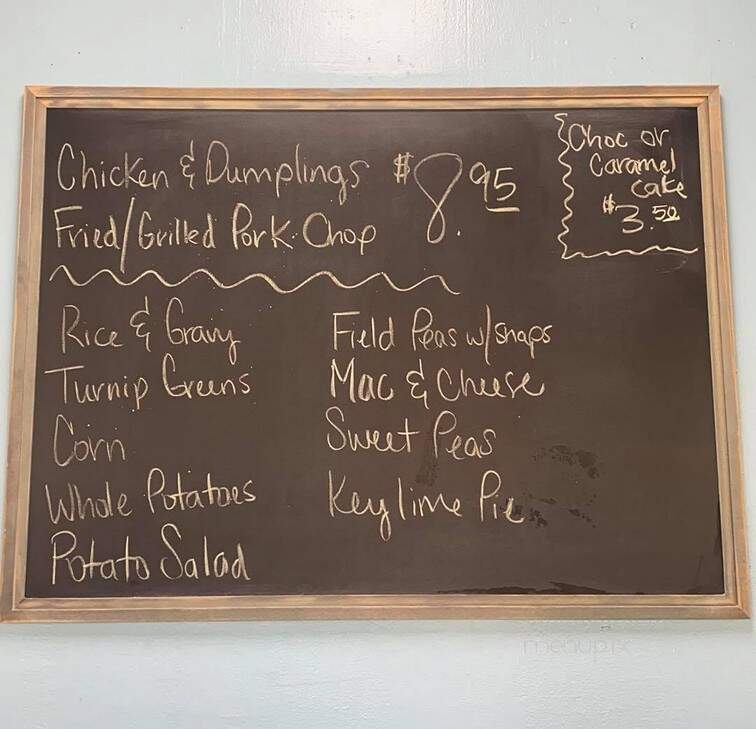 Chicken & Dumplings $8.95
Fried/Grilled Pork Chop
Choc or
Caramel
cake
$3.50
Rice & Gravy
Turnip Greens
Corn
Whole Potatoes
Potato Salad
Field Peas w/snaps
Mac & Cheese
Sweet Peas
Key lime Pie
menupix